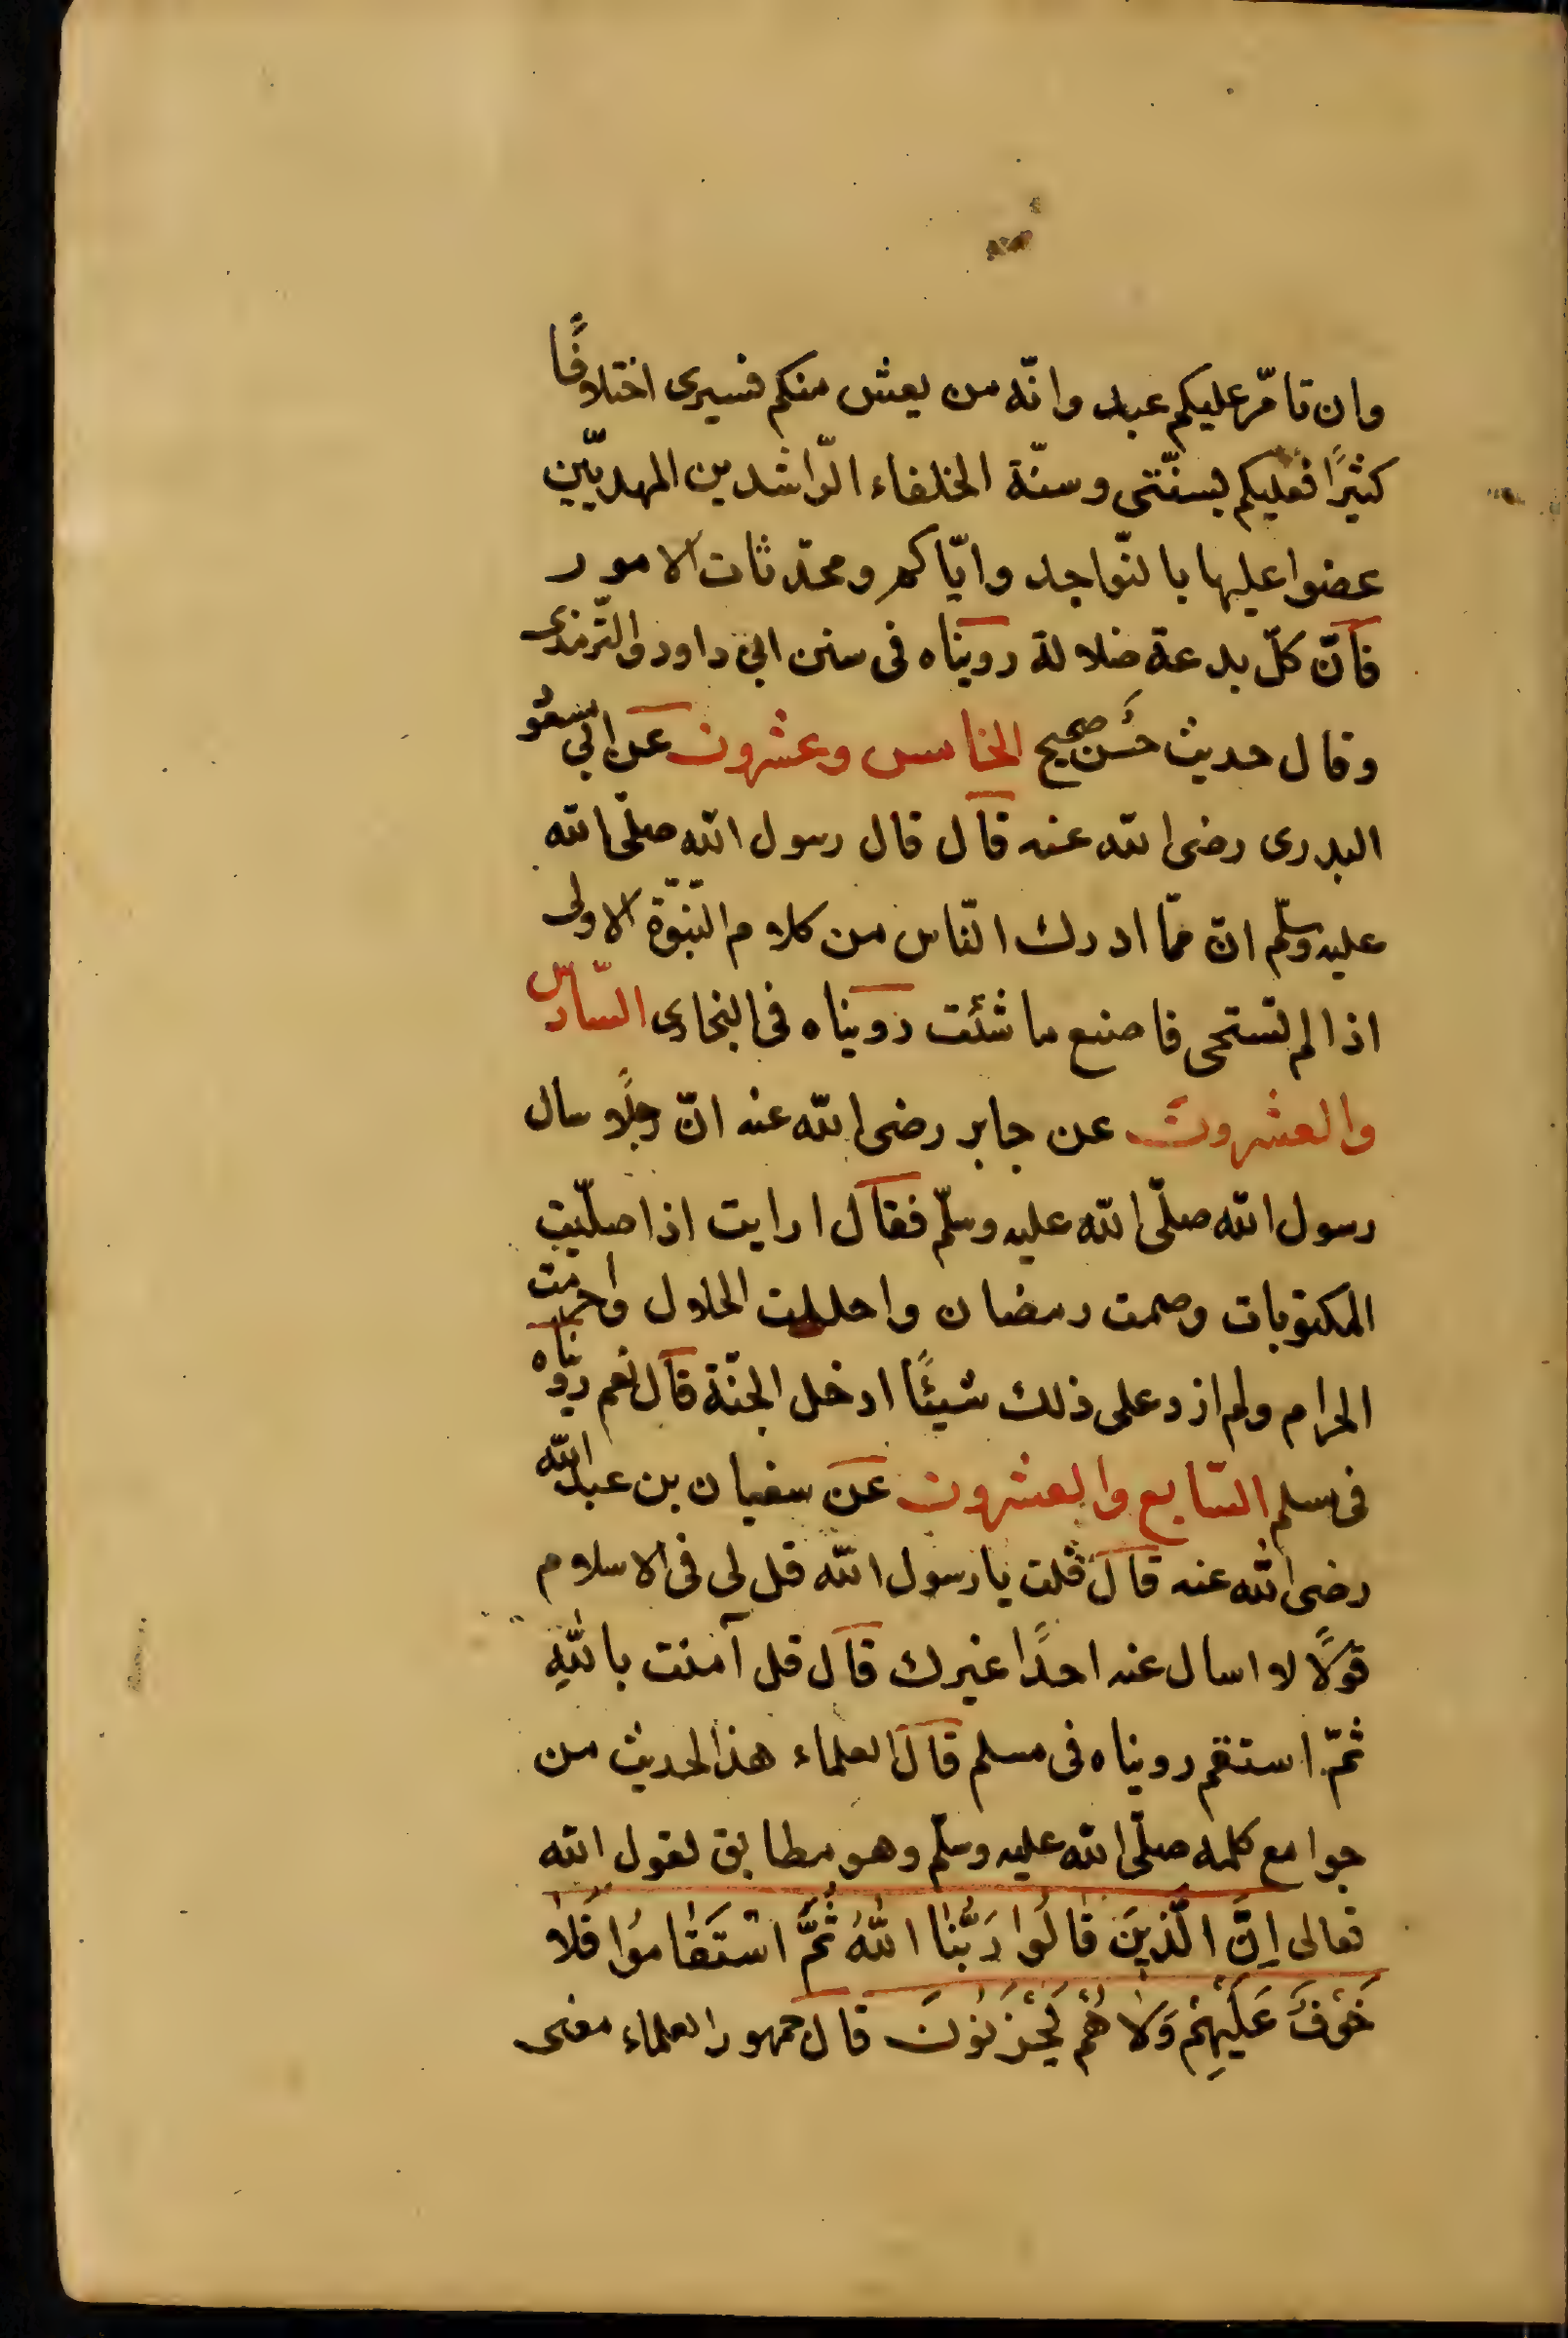 وان تامّر عليكم عبد وانّه من يعش منكم فسيرى اختلافًا
كثيرًا فعليكم بسنّتى وسنّة الخلفاء الرّاشدين المهديّين
عضوا عليها بالنّواجد وايّاكم ومحدثات الامور
فانّ كلّ بدعة ضلالة رويناه فى سنن ابى داود والتّرمذى
وقال حديث حَسن صحيح الخامس وعشرون عن ابى مسعو
البدرى رضى الله عنه قال قال رسول الله صلّى الله
عليه وسلّم انّ ممّا ادرك النّاس من كلام النّبّوّة الاولى
اذا لم تستحى فاصنع ما شئت رويناه فى البخارى السّادس
والعشرون عن جابر رضى الله عنه انّ رجلًا سال
رسول الله صلّى الله عليه وسلّم فقال ارايت اذا صلّيت
المكتوبات وصمت رمضان واحللت الحلال واحرمت
الحرام ولم ازد على ذلك شيئًا ادخل الجنّة قال نعم رويناه
فى مسلم السّابع والعشرون عن سفيان بن عبد الله
رضى الله عنه قال قلت يا رسول الله قل لى فى الاسلام
قولًا لا اسال عنه احدًا غيرك قال قل آمنت باللهِ
ثمّ استقم رويناه فى مسلم قال العلماء هذا الحديث من
جوامع كلمه صلّى الله عليه وسلّم وهو مطابق لقول الله
تعالى اِنَّ الَّذينَ قالُوا رَبُّنا اللهُ ثُمَّ اسْتَقامُوا فَلا
خَوْفٌ عَلَيْهِمْ وَلا هُمْ يَحْزَنُونَ قال جمهور العلماء معنى